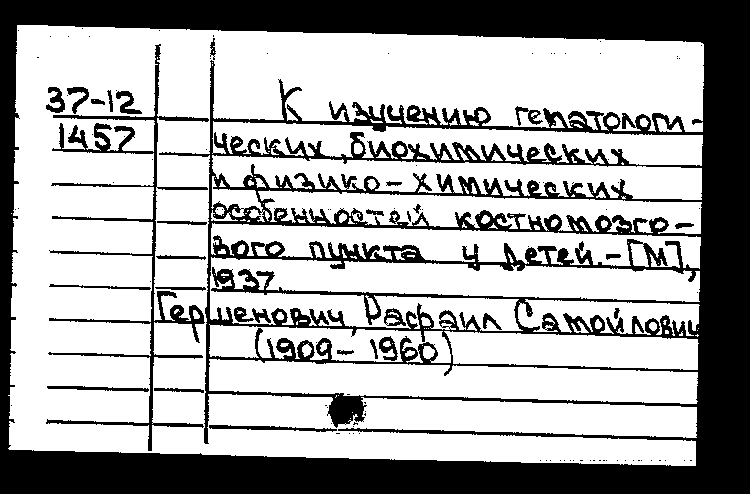 37-12 К изучению гематологи-
1457 ческих, биохимических
и физико-химических
особенностей костномозго-
вого пункта у детей.-[М],
1937.
Гершенович, Рафаил Самойлович
(1909-1960)